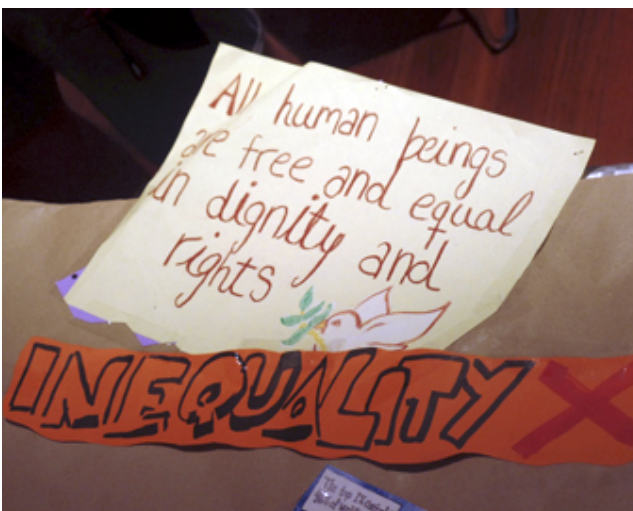 All human beings
are free and equal
in dignity and
rights
INEQUALITY X
The top 1%